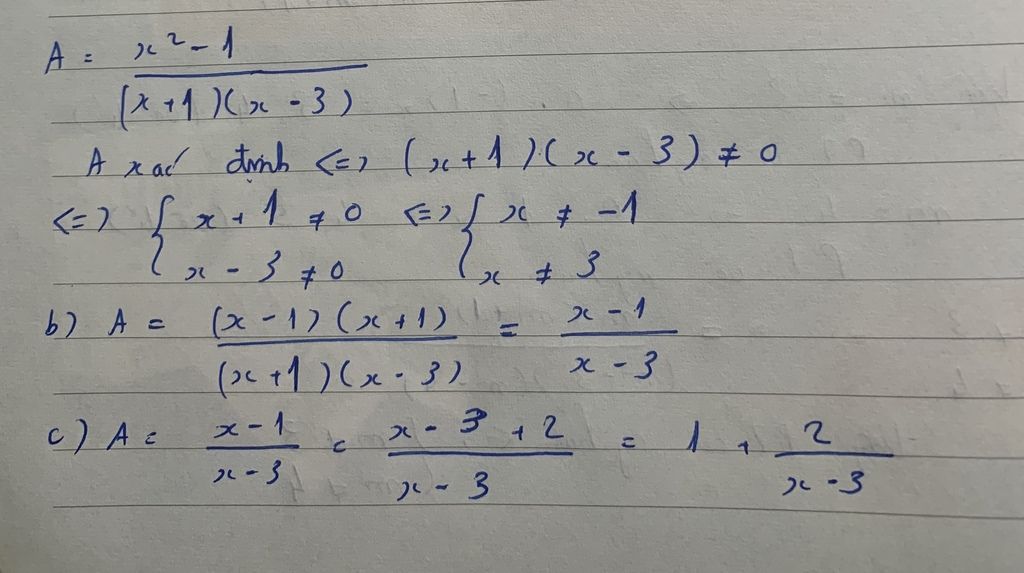 A = x² - 1 / (x + 1)(x - 3)
A xác định <=> (x + 1).(x - 3) ≠ 0
<=> { x + 1 ≠ 0 <=> { x ≠ -1
x - 3 ≠ 0 x ≠ 3
b) A = (x - 1)(x + 1) / (x + 1)(x - 3) = x - 1 / x - 3
c) A = x - 1 / x - 3 = x - 3 + 2 / x - 3 = 1 + 2 / x - 3